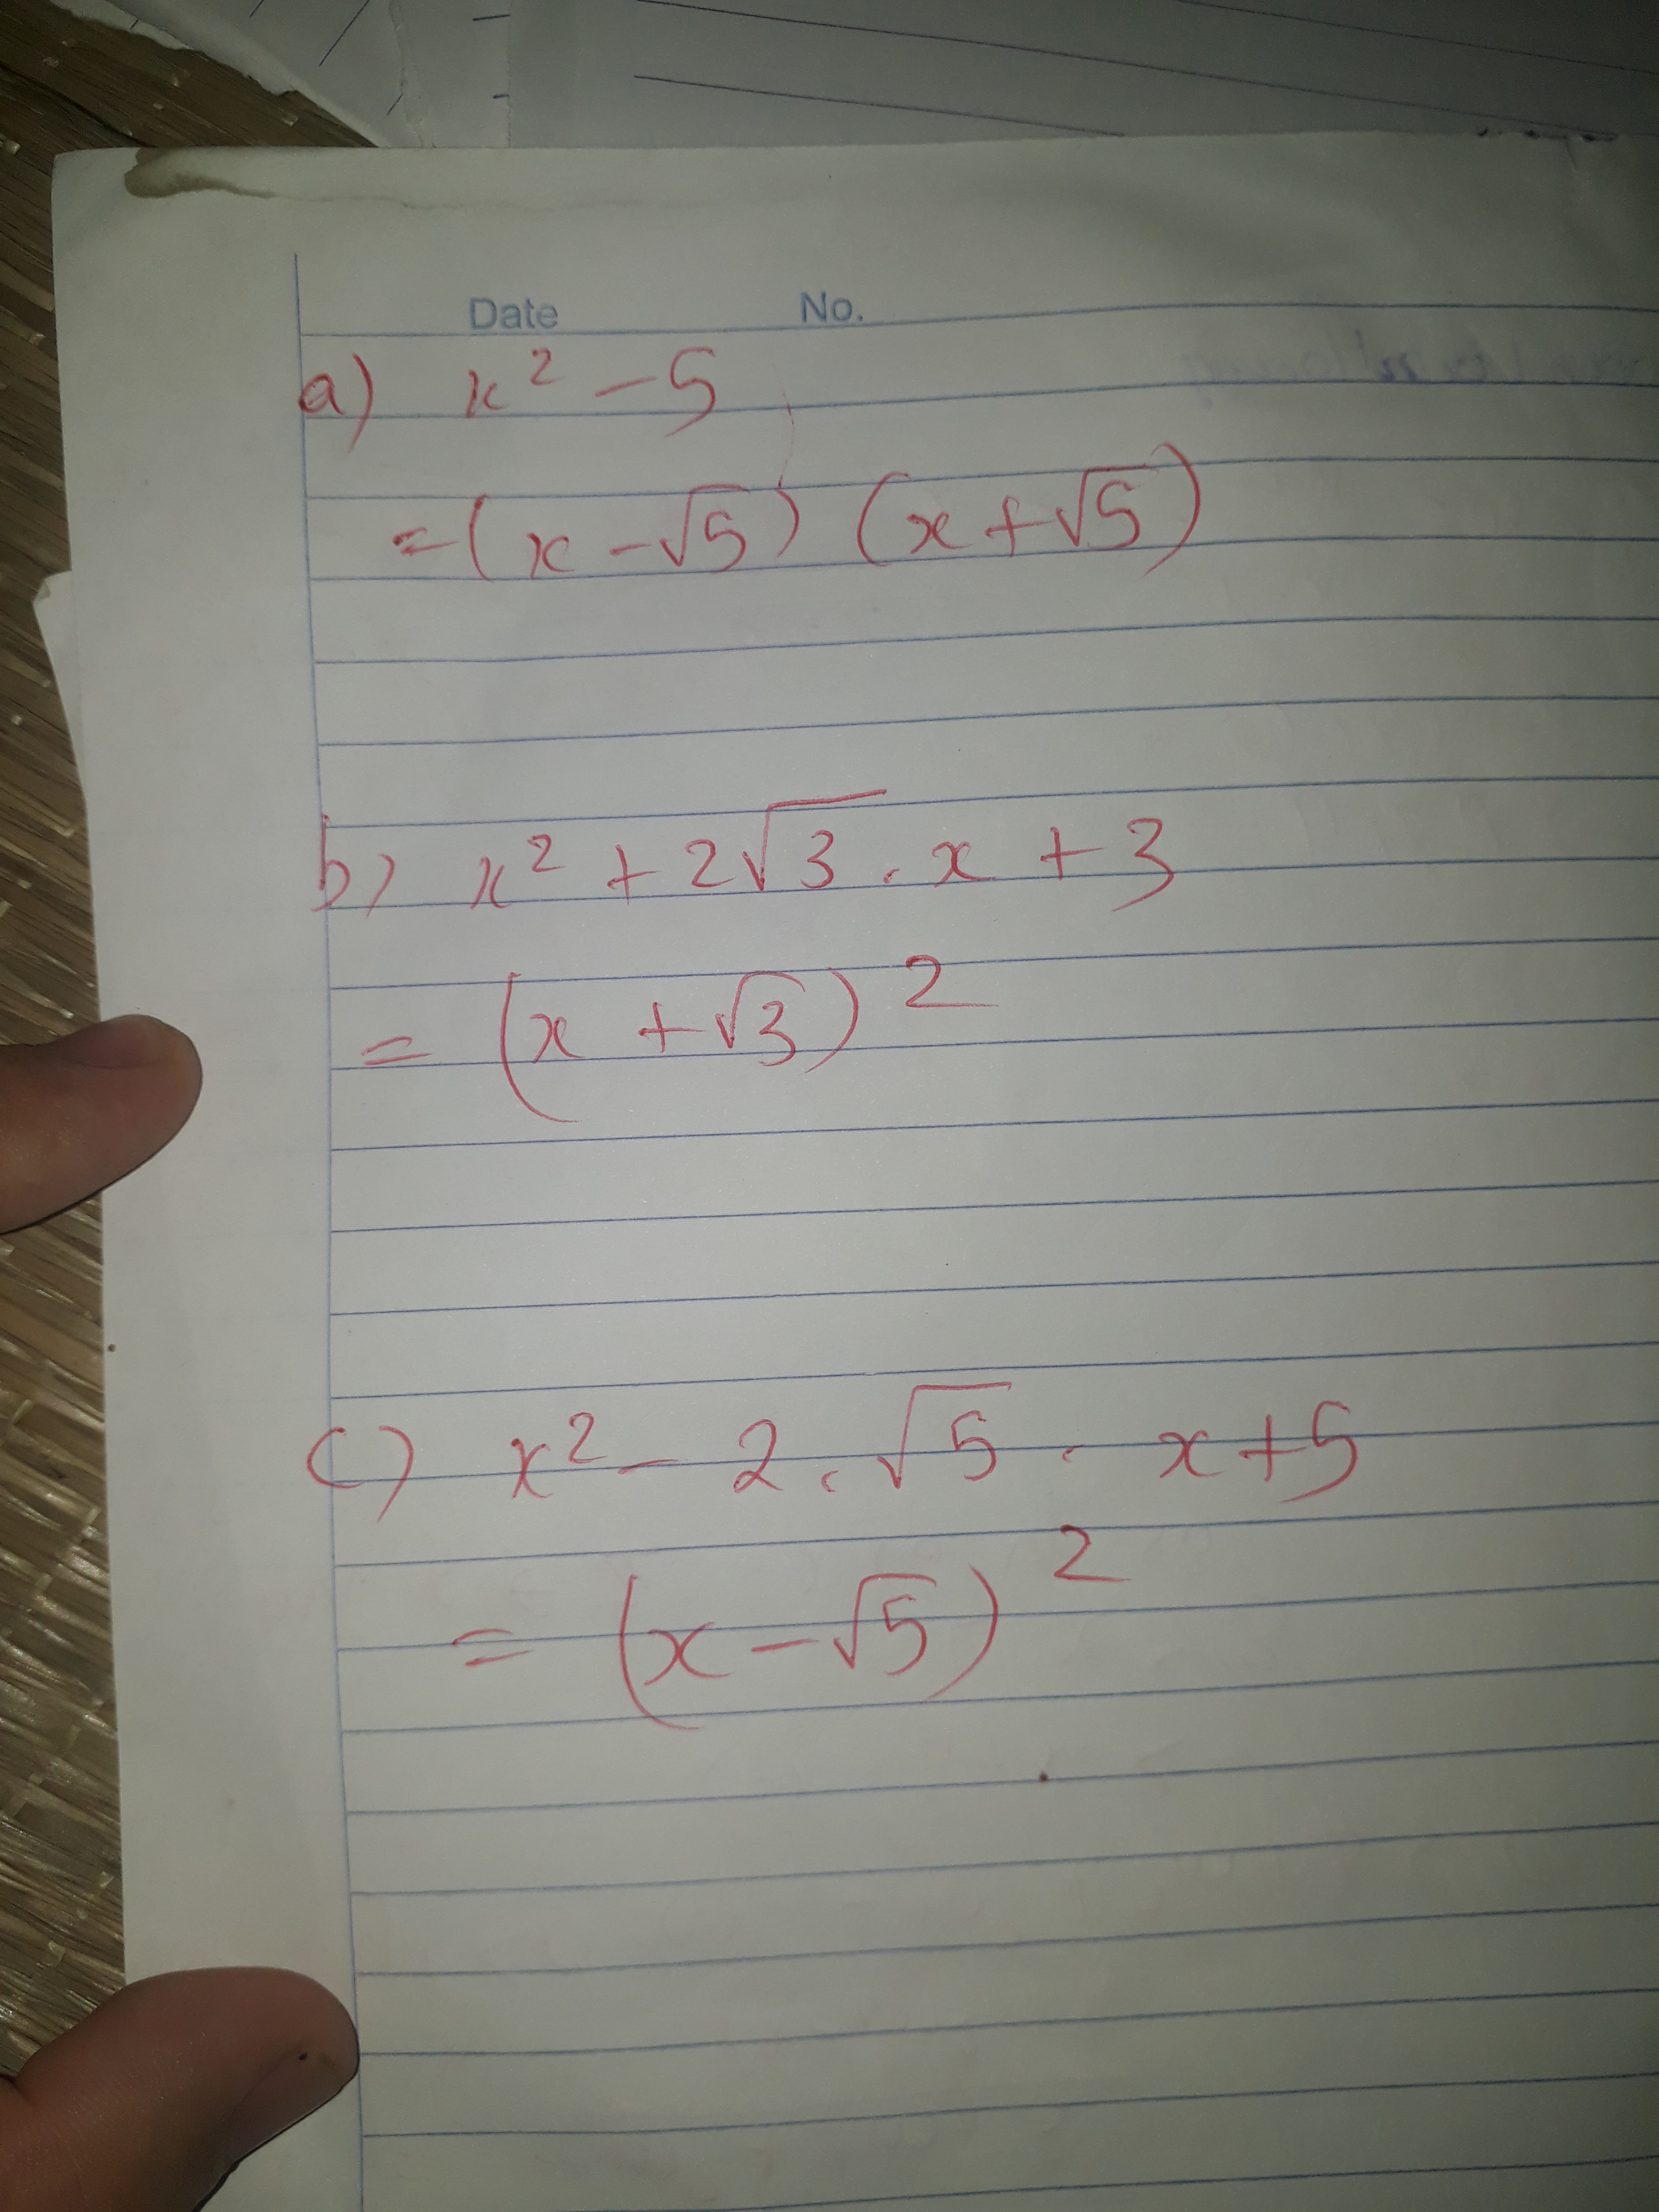 Date No.
a) x² - 5
= (x - √5) (x + √5)
b) x² + 2√3 . x + 3
= (x + √3)²
c) x² - 2 . √5 . x + 5
= (x - √5)²